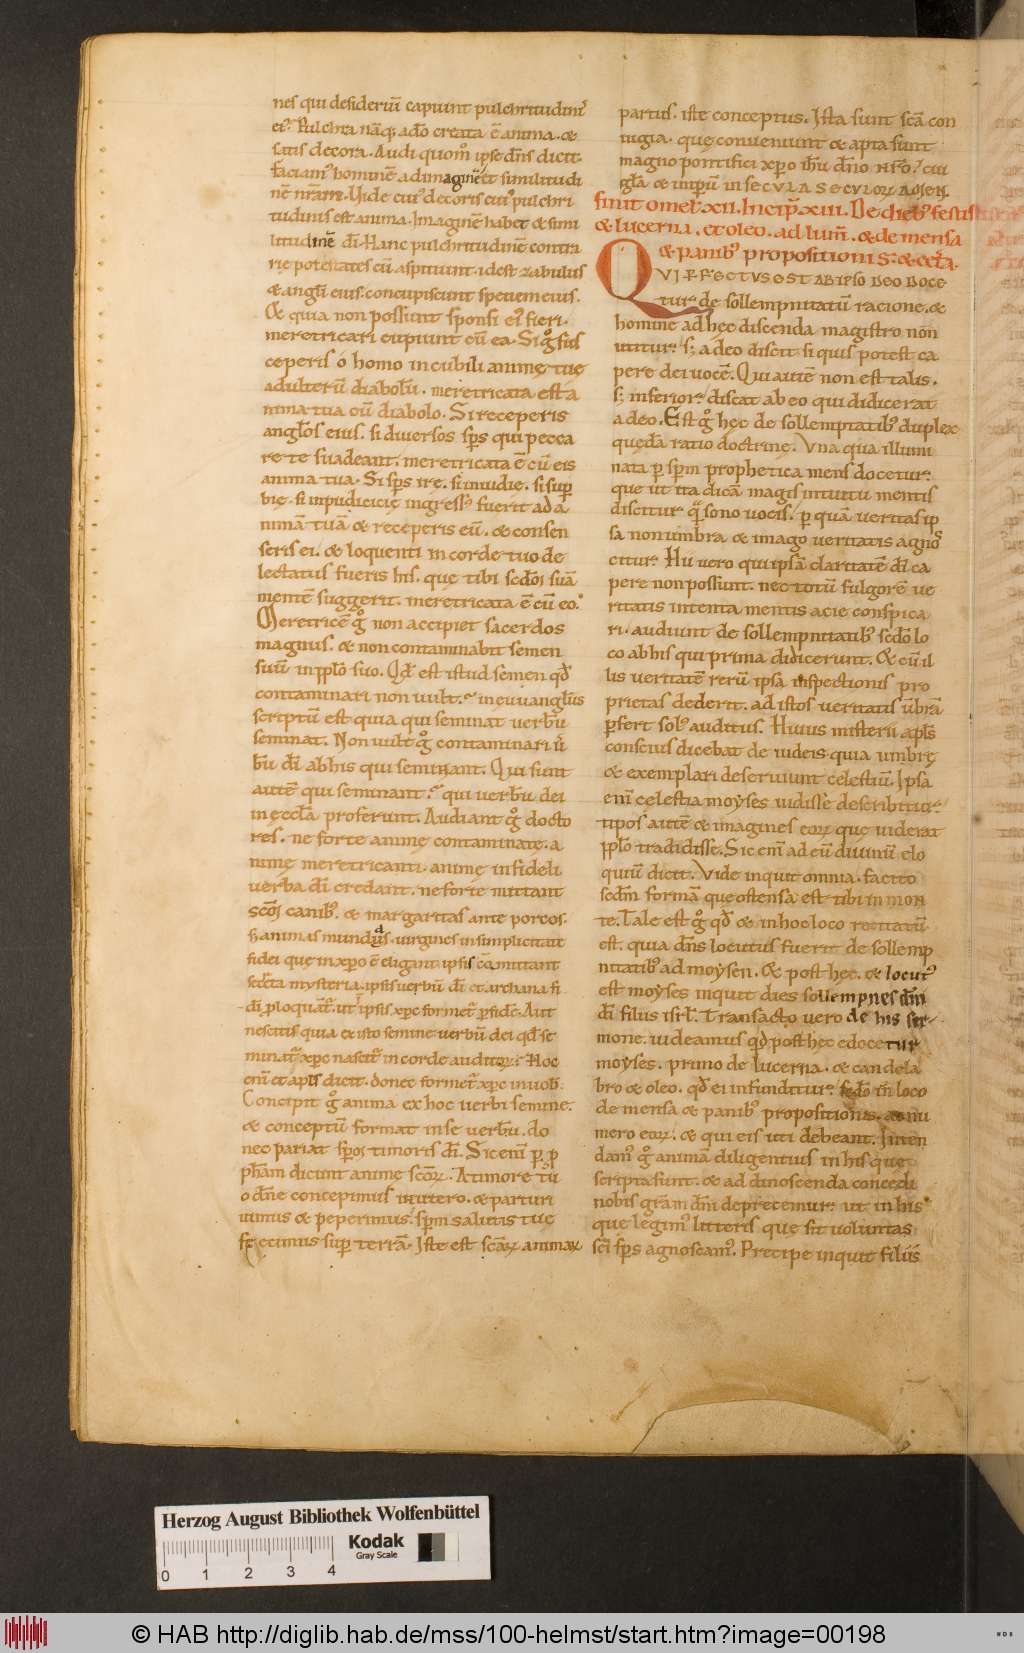 nes qui desideriũ capiunt pulchritudinis
ei᾽. Pulchra nãq; a dõ creata ẽ anima. &
satis decora. Audi quomº ipse dñs dicit.
Faciam᾽ hominẽ ad imaginẽ et similitudi
nẽ nrãm. Vide cui᾽ decoris cui᾽ pulchri
tudinis est anima. Imaginẽ habet & simi
litudinẽ dĩ. Hanc pulchritudinẽ contra
rie potestates cũ aspiciunt. id est zabulus
& angłi eius. concupiscunt speciem eius.
Et quia non possunt sponsi ei᾽ fieri.
meretricari cupiunt cũ ea. Si gº sus
ceperis o homo in cubili animę tuę
adulterũ diabolũ. meretricata est a
nima tua cũ diabolo. Si receperis
angłos eius. si diversos sp̃s qui pecca
re te suadeant. meretricata ẽ cũ eis
anima tua. Si sp̃s irę. si invidię. si sup̱
bię. si impudicicię ingress᾽ fuerit ad a
nimã tuã & receperis eũ. & consen
seris ei. & loquenti in corde tuo de
lectatus fueris his. quę tibi scdm suã
mentẽ suggerit. meretricata ẽ cũ eo.
Meretricẽ gº non accipiet sacerdos
magnus. & non contaminabit semen
suũ in ppło suo. Qđ est istud semen qđ
contaminari non vult? in euuanglłiis
scriptũ est quia qui seminat verbũ
seminat. Non vult gº contaminari v̾
bũ dĩ ab his qui seminant. Qui sunt
autẽ qui seminant? qui verbũ dei
in ęccła proferunt. Audiant gº docto
res. ne forte animę contaminatę. a
nimę meretricanti. animę infideli
verba dĩ credant. ne forte mittant
scm canib᾽. & margaritas ante porcos.
s; animas mundas. virgines in simplicitate
fidei quę in xp̃o ẽ eligant. ipsis cõmittant
secreta mysteria. ipsis verbũ dĩ et archana fi
dĩ p̱loquant᾽. ut ipsis xp̃c formet᾽ p̱ fidẽ. Aut
nescitis quia ex isto semine verbũ dei qđ se
minat᾽ xp̃c nascit᾽ in corde auditorꝝ? Hoc
enĩ et apłs dicit. donec formet᾽ xp̃c in vob̃.
Concipit gº anima ex hoc verbi semine.
& conceptũ format in se verbũ. do
nec pariat sp̃m timoris dĩ. Sic enĩ p̱ p̱
phãm dicunt animę scõrꝝ. A timore tuo
o dñe concepimus in utero. & parturi
vimus & peperimus. sp̃m salutis tuę
fecimus sup̱ terrã. Iste est scãrꝝ animarꝝ
partus. iste conceptus. Ista sunt scã con
iugia. quę conveniunt & apta sunt
magno pontifici xp̃o ihũ dño nr̃o. cui
głã & imp̱iũ in SECVLA SECVLORꝝ AMEN.
finit omel᾽. XII. Incip̱. XIII. De dieb᾽ festis
& lucerna. et oleo. ad lum̃. & de mensa
& panib᾽ propositionis. & cet᾽a.
QVI PFECTVS EST AB IPSO DEO DOCE
tur. de sollempnitatũ racione. &
homine ad hec discenda magistro non
utitur. s; a deo discit si quis potest ca
pere dei vocẽ. Qui autẽ non est talis.
s; inferior. discat ab eo qui didicerat
a deo. Est gº hęc de sollempnitatib᾽ duplex
quędã ratio doctrinę. Vna qua illumi
nata p̱ sp̃m prophetica mens docetur.
que ut ita dicã magis intuitu mentis
discitur q̃ sono vocis. p̱ quã veritas ip
sa non umbra & imago veritatis agnos
citur. Hii vero qui ipsã claritatẽ dĩ ca
pere non possunt. nec totũ fulgorẽ ve
ritatis intenta mentis acie conspica
ri. audiunt de sollempnitatib᾽ scdõ lo
co ab his qui prima didicerunt. Et cũ il
lis veritatẽ rerũ ipsa inspectionis pro
prietas dederit. ad istos veritatis ũbrã
p̱fert sol᾽ auditus. Huius misterii apłs
conscius dicebat de iudeis. quia umbrę
& exemplari deserviunt celestiũ. Ipsa
enĩ celestia moyses vidisse describitur.
tipos autẽ & imagines eorꝝ quę viderat
ppło tradidisse. Sic enĩ ad eũ divinũ elo
quiũ dicit. Vide inquit omnia. facito
scdm formã que ostensa est tibi in mon
te. Tale est gº qđ & in hoc loco recitatũ
est. quia dñs locutus fuerit de sollemp
nitatib᾽ ad moysen. Et post hęc. & locut᾽
est moyses inquit dies sollempnes dñi
dĩ filiis isrł. Transacto vero de his ser
mone. videamus qđ post hęc edocetur
moyses. primo de lucerna. & candela
bro & oleo. qđ ei infunditur. scdõ in loco
de mensa & panib᾽ propositionis. & nu
mero eorꝝ. & qui eis uti debeant. Inten
dam᾽ gº animã diligentius in his quę
scripta sunt. & ad dinoscenda concedi
nobis gr̃am dñm deprecemur. ut in his
que legim᾽ litteris que sit voluntas
scĩ sp̃s agnoscam᾽. Precipe inquit filiis
Herzog August Bibliothek Wolfenbüttel
Kodak
Gray Scale
0 1 2 3 4
© HAB http://diglib.hab.de/mss/100-helmst/start.htm?image=00198